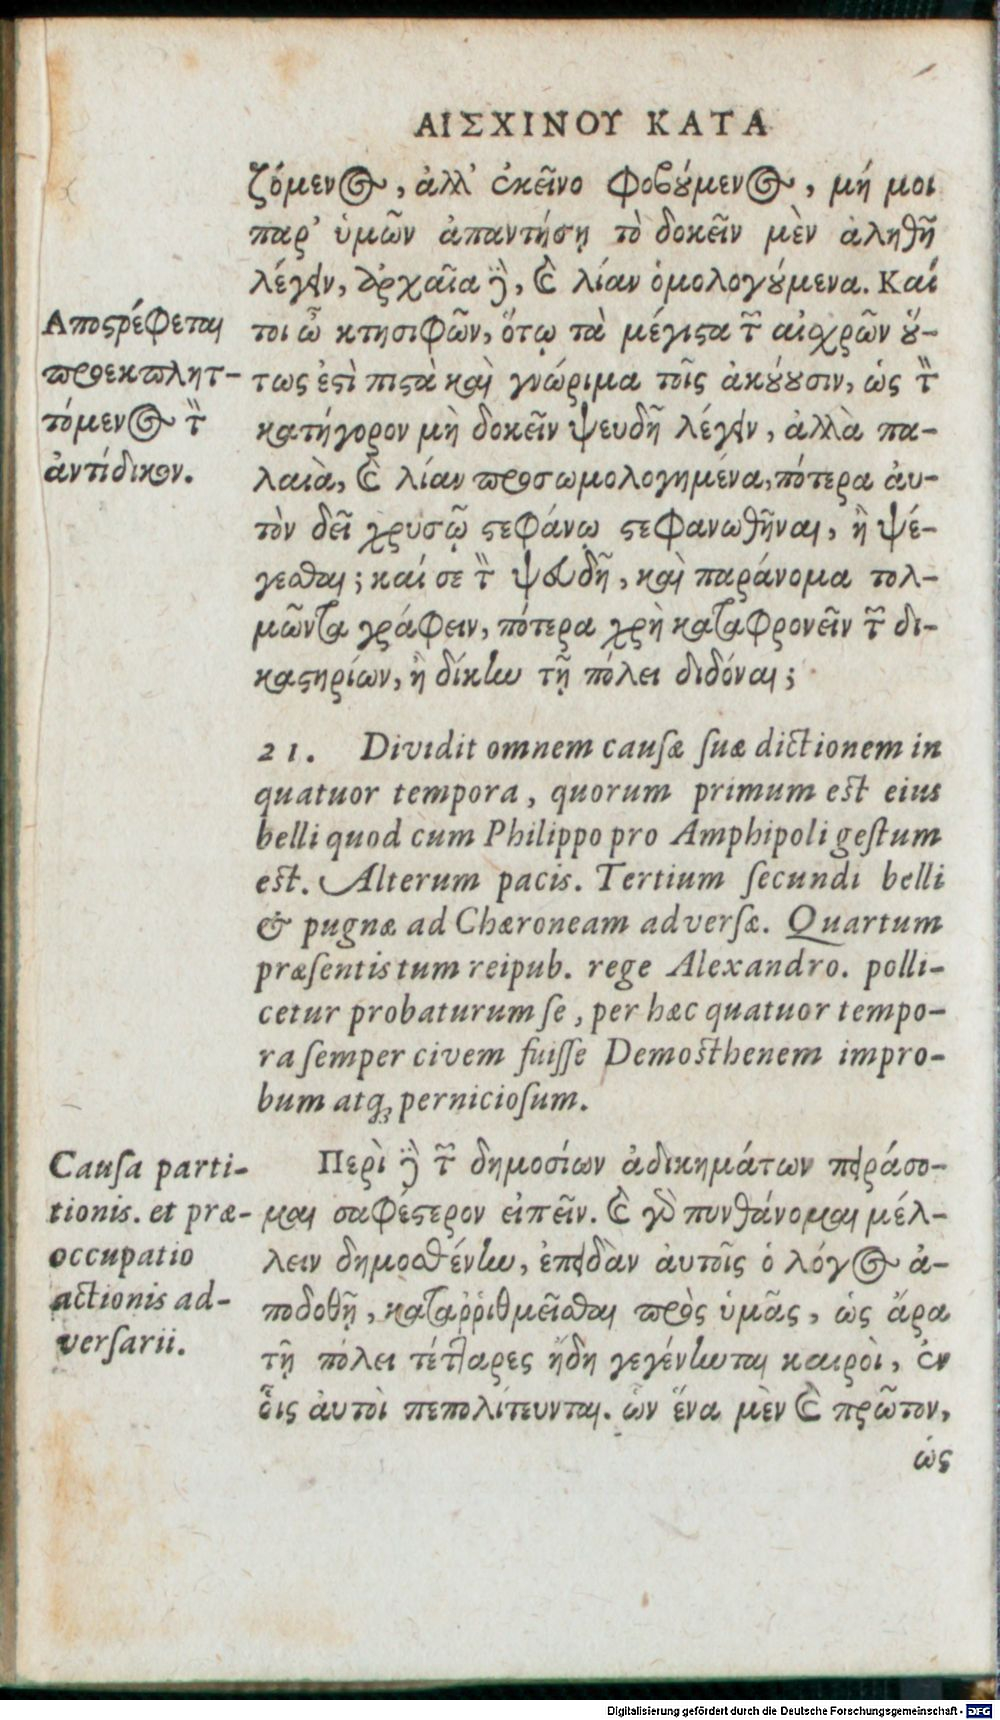 ΑΙΣΧΙΝΟΥ ΚΑΤΑ
ζόμενος, ἀλλ' ἐκεῖνο φοβούμενος, μή μοι
παρ' ὑμῶν ἀπαντήσῃ τὸ δοκεῖν μὲν ἀληθῆ
λέγειν, ἀρχαῖα δὲ, καὶ λίαν ὁμολογούμενα. Καί
τοι ὦ κτησιφῶν, ὅτῳ τὰ μέγιστα τῶν αἰσχρῶν οὕ-
τως ἐστὶ πιστὰ καὶ γνώριμα τοῖς ἀκούουσιν, ὡς τὸν
κατήγορον μὴ δοκεῖν ψευδῆ λέγειν, ἀλλὰ πα-
λαιὰ, καὶ λίαν προσωμολογημένα, πότερα ἀυ-
τὸν δεῖ χρυσῷ στεφάνῳ στεφανωθῆναι, ἢ ψέ-
γεσθαι; καί σε τὸν ψευδῆ, καὶ παράνομα τολ-
μῶντα γράφειν, πότερα χρὴ καταφρονεῖν τῶν δι-
καστηρίων, ἢ δίκην τῇ πόλει διδόναι;
Αποστρέφεται
προεκπλητ-
τόμενος τὸν
ἀντίδικον.
21. Dividit omnem causæ suæ dictionem in
quatuor tempora, quorum primum est eius
belli quod cum Philippo pro Amphipoli gestum
est. Alterum pacis. Tertium secundi belli
& pugnæ ad Chæroneam adversæ. Quartum
præsentis tum reipub. rege Alexandro. polli-
cetur probaturum se, per hæc quatuor tempo-
ra semper civem fuisse Demosthenem impro-
bum atq; perniciosum.
Causa parti-
tionis. et præ-
occupatio
actionis ad-
versarii.
Περὶ δὲ τῶν δημοσίων ἀδικημάτων πειράσο-
μαι σαφέστερον εἰπεῖν. καὶ γὰρ πυνθάνομαι μέλ-
λειν δημοσθένην, ἐπειδὰν ἀυτοῖς ὁ λόγος ἀ-
ποδοθῇ, καταῤῥιθμεῖσθαι πρὸς ὑμᾶς, ὡς ἄρα
τῇ πόλει τέτταρες ἤδη γεγένηνται καιροὶ, ἐν
οἷς ἀυτὸς πεπολίτευνται. ὧν ἕνα μὲν καὶ πρῶτον,
ὡς
Digitalisierung gefördert durch die Deutsche Forschungsgemeinschaft - DFG